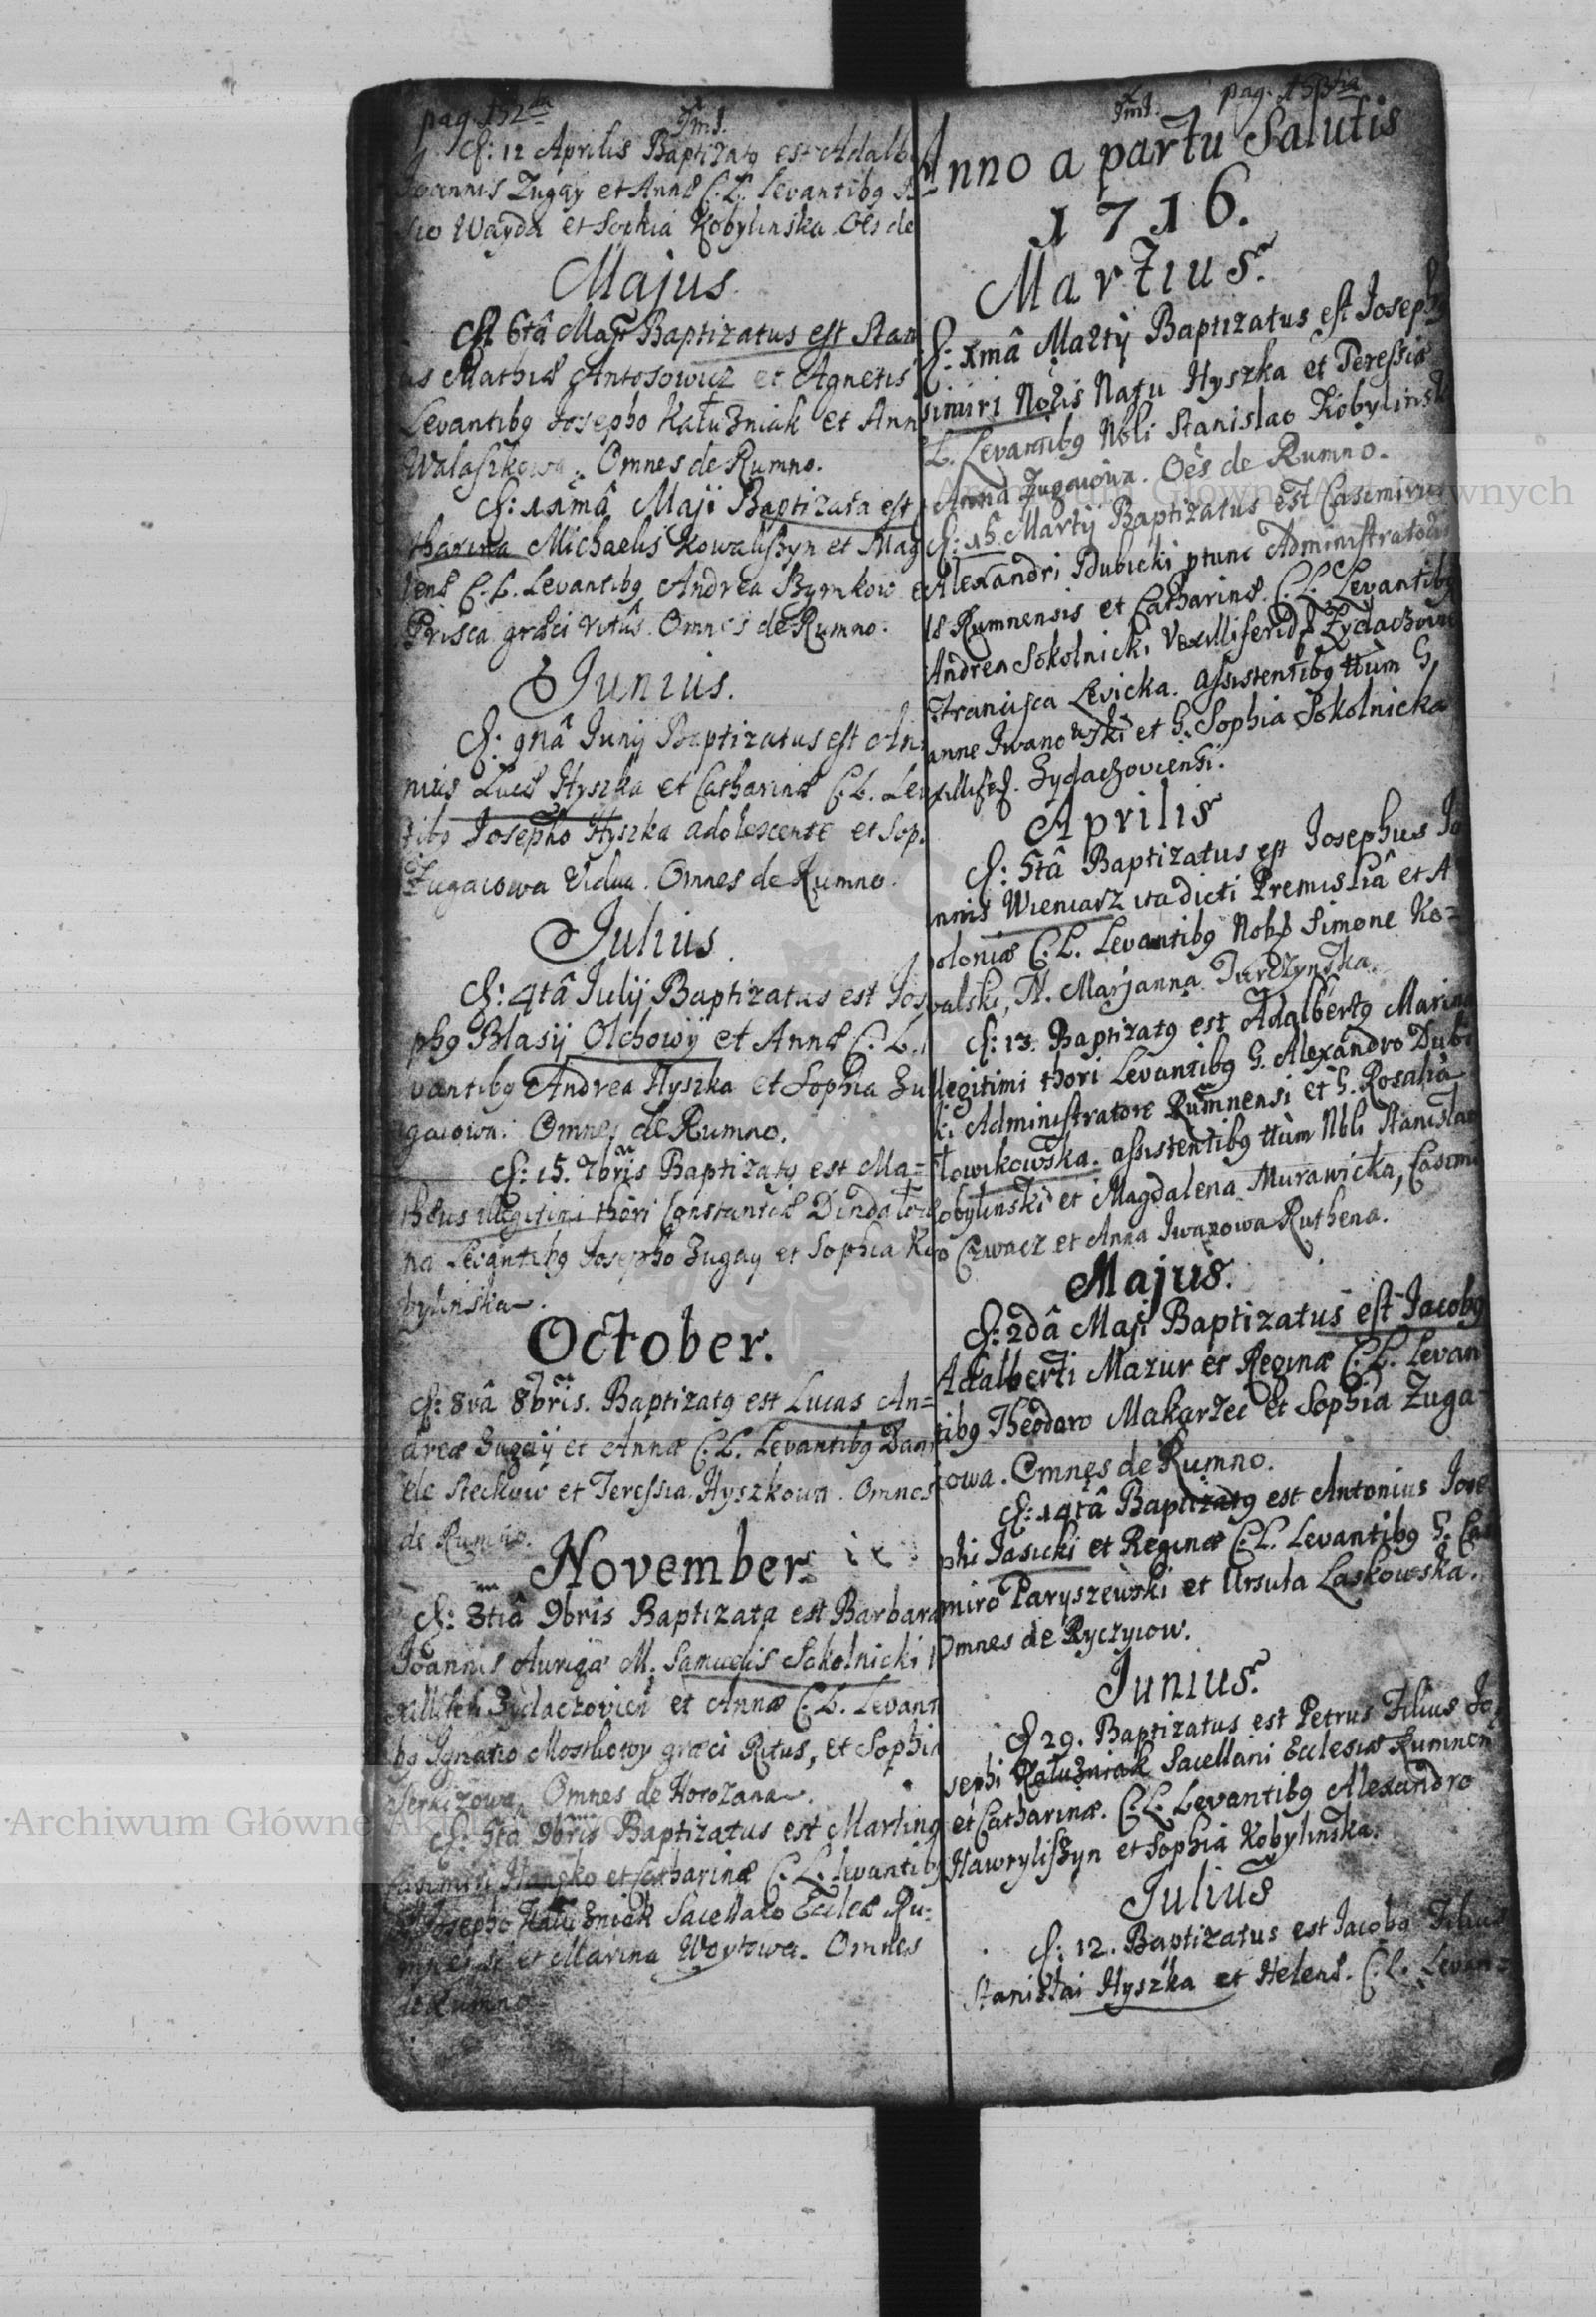 pag. 152da
Jmj.
D: 12 Aprilis Baptizatq est Adalb
Joannis Zugay et Annæ C. L. Levantibq
sio Wayda et Sophia Kobylinska Oes de
Majus.
D 6tâ Maji Baptizatus est Stan
us Mathiæ Antosowicz et Agnetis
Levantibq Josepho Kałuzniak et Ann
Walaszkowa. Omnes de Rumno.
D: 11mâ Maji Baptizata est
tharina Michaelis Kowaliszyn et Mag
lenæ C. L. Levantibq Andrea Szymkow e
Prisca græci ritûs. Omnes de Rumno.
Junius.
D: 9nâ Junij Baptizatus est An
nius Lucæ Hyszka et Catharinæ C. L. Lev
tibq Josepho Hyszka adolescente et Sop
Zugaiowa Vidua. Omnes de Rumno.
Julius.
D: 4tâ Julij Baptizatus est Jos
phq Blasij Olchowij et Annæ C. L.
vantibq Andrea Hyszka et Sophia Zu
gaiowa. Omnes de Rumno.
D: 15. 7bris Baptizatq est Ma=
theus illegitimi thori Constantiæ Dindało
na Levantibq Josepho Zugay et Sophia Ko
bylinska.
October.
D: 8vâ 8bris. Baptizatq est Lucas An=
dreæ Zugaij et Annæ C. L. Levantibq Dani
ele Steckow et Teressia Hyszkowa. Omnes
de Rumno.
November.
D: 3tiâ 9bris Baptizata est Barbara
Joannis Aurigæ M. Samuelis Sokolnicki
xilliferi Zydaczovien et Annæ C. L. Levant
bq Ignatio Mostkowy græci Ritus, et Sophia
Omnes de Horozana.
D: 5tâ 9bris Baptizatus est Martinq
Casimiri Hanyko et Catharinæ C. L. levantib
Josepho Kałuzniak Sacellano Eccleæ Ru=
mnensi et Marina Woytowa. Omnes
de Rumno
Jmj.
pag. 153tia
Anno a partu Salutis
1716.
Martius.
D: 1mâ Martij Baptizatus est Joseph
simiri Nobis Natu Hyszka et Teressiæ
L. Levantibq Nbli Stanislao Kobylinsk
Anna Zugaiowa. Oes de Rumno.
D: 15. Martij Baptizatus est Casimirus
Alexandri Dubicki ptunc Administratoris
is Rumnensis et Catharinæ. C. L. Levantibq
Andrea Sokolnicki Vexilliferid Zydaczovien
Francisca Levicka. assistentibq ttum G.
anne Iwanowski et G. Sophia Sokolnicka
xillifed. Zydaczoviensi.
Aprilis
D: 5tâ Baptizatus est Josephus Jo
nnis Wieniarz ita dicti Premisliâ et A
oloniæ C. L. Levantibq Nobs Simone Ko=
valski, N. Marjanna Turczynska.
D: 13. Baptizatq est Adalbertq Marina
llegitimi thori Levantibq G. Alexandro Dubi
ki Administratore Rumnensi et G. Rosalia
łowikowska. assistentibq ttum Nbli Stanislao
obylinski et Magdalena Murawicka, Casimi
o Czwacz et Anna Iwanowa Ruthena.
Majus.
D: 2dâ Maji Baptizatus est Jacobq
Adalberti Mazur et Reginæ C. L. Levan
tibq Theodaro Makarzec et Sophia Zuga=
iowa. Omnes de Rumno.
D: 14tâ Baptizatq est Antonius Jose
phi Jasicki et Reginæ C. L. Levantibq G. Cas
miro Paryszewski et Ursula Laskowska.
Omnes de Ryczyiow.
Junius.
D 29. Baptizatus est Petrus Filius Jo
sephi Kałuzniak Sacellani Ecclesiæ Rumnen
et Catharinæ. C. L. Levantibq Alexandro
Hawryliszyn et Sophia Kobylinska.
Julius
D: 12. Baptizatus est Jacobq Filius
Stanisłai Hyszka et Helenæ. C. L. Levan=